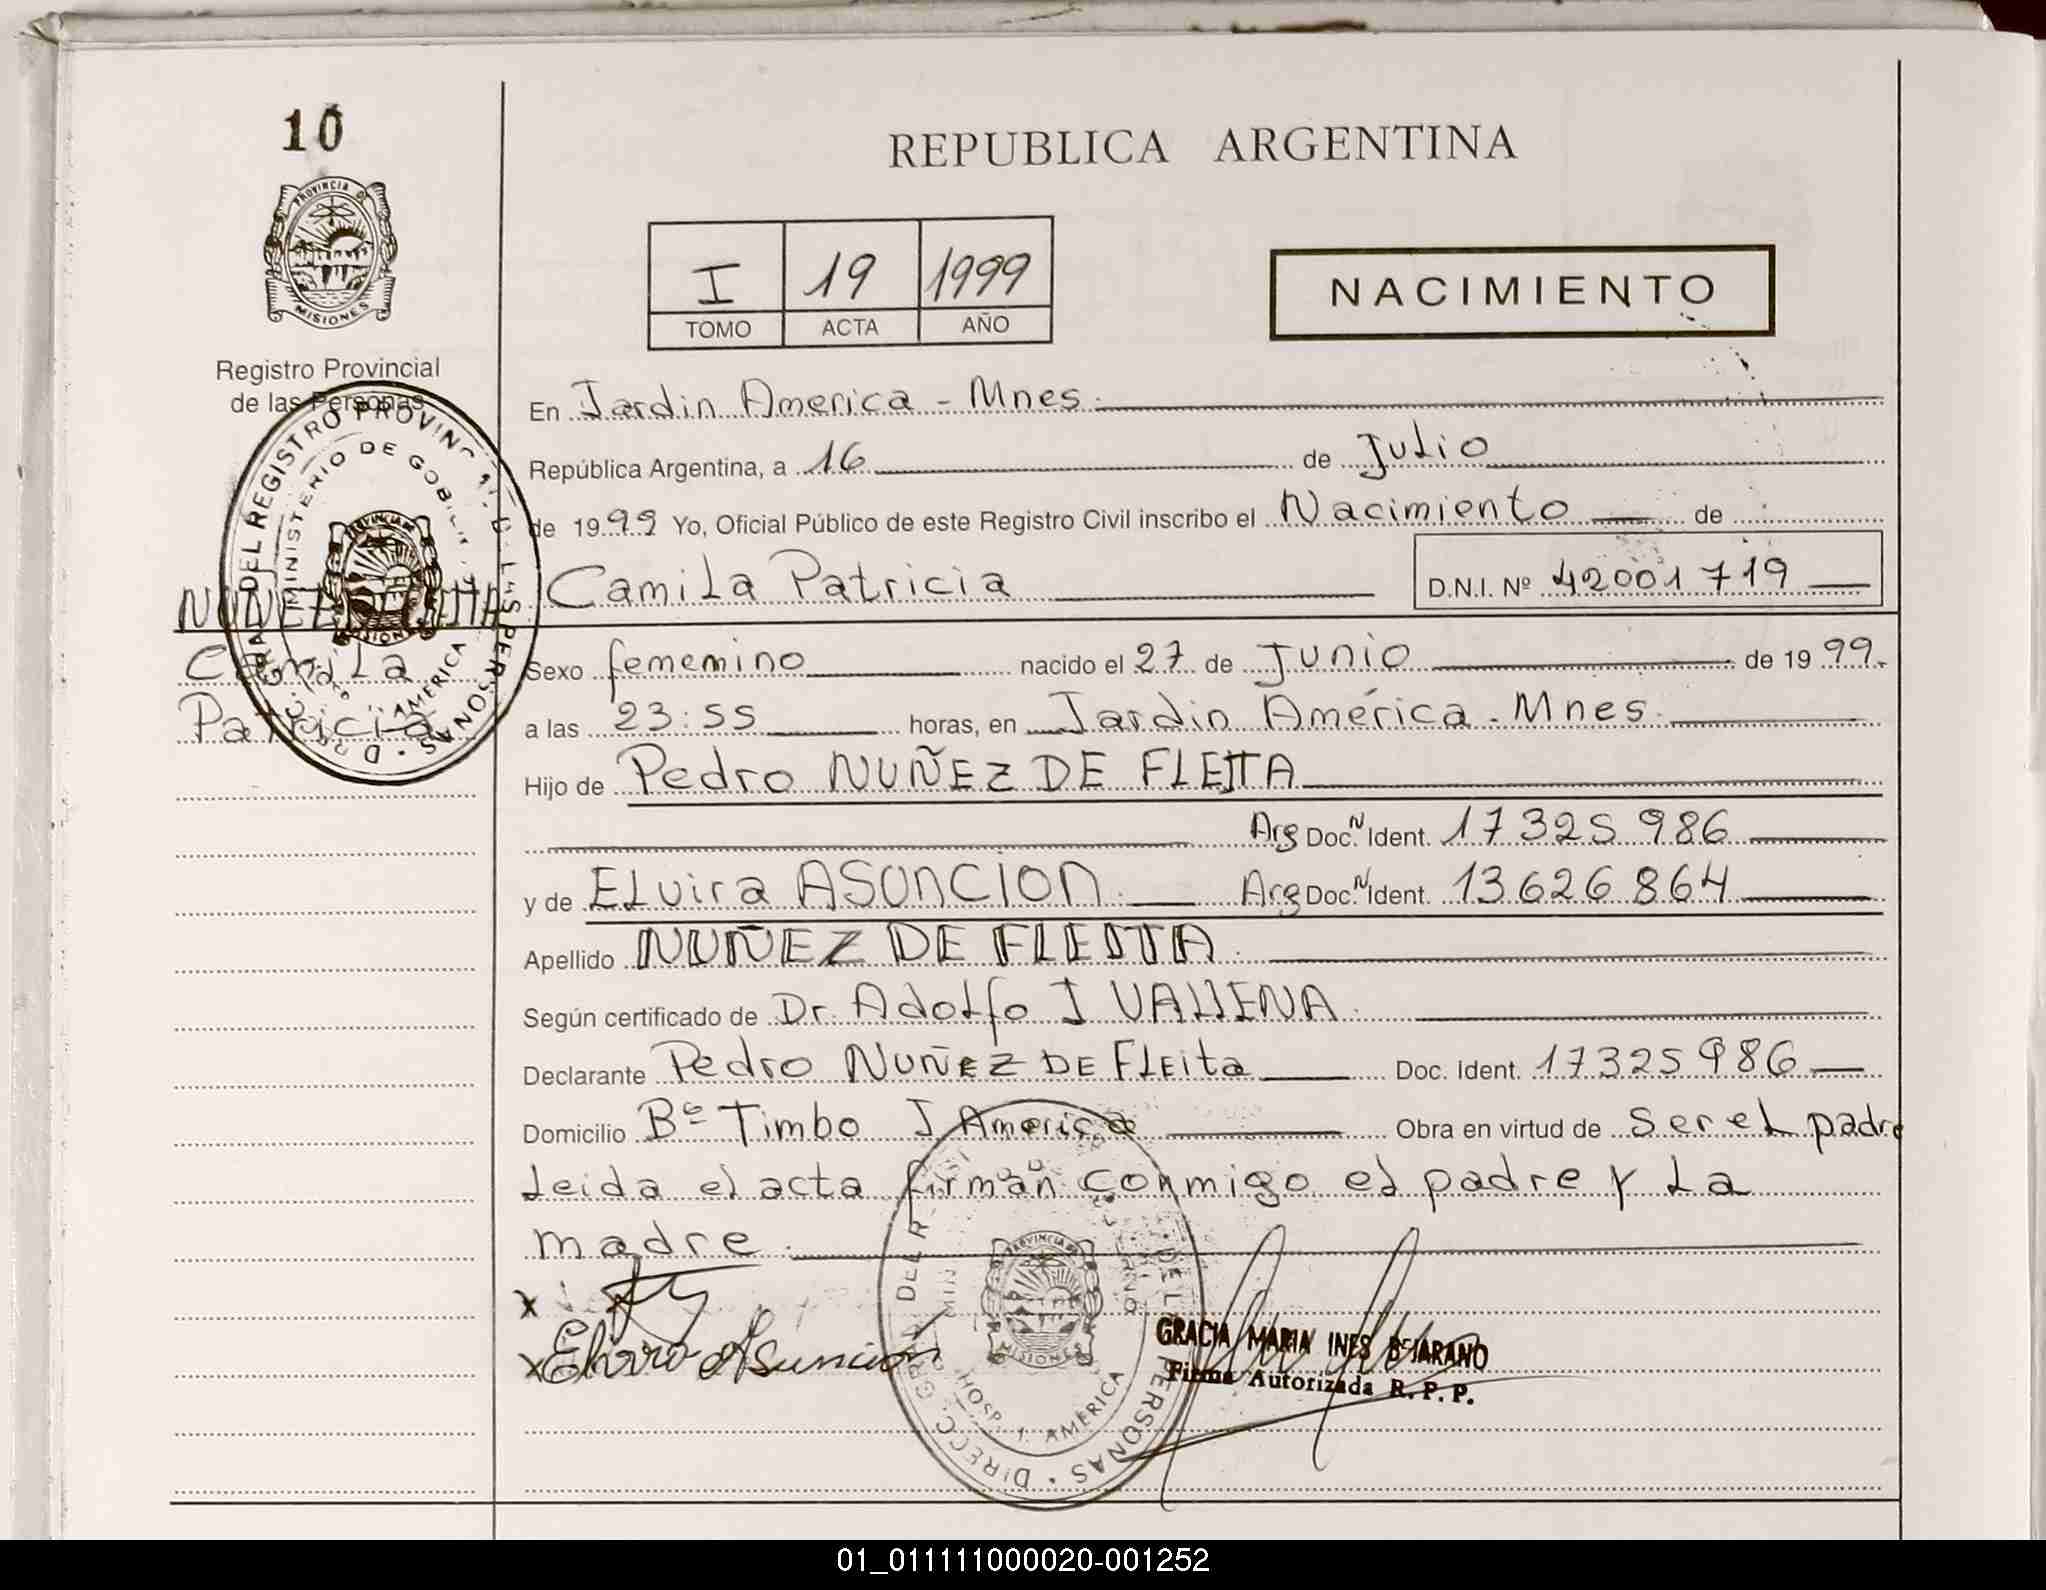 10
REPUBLICA ARGENTINA
PROVINCIA DE
MISIONES
I 19 1999
TOMO ACTA AÑO
NACIMIENTO
Registro Provincial
de las Personas
En Jardin America - Mnes.
República Argentina, a 16 de Julio
de 1999 Yo, Oficial Público de este Registro Civil inscribo el Nacimiento de
NUÑEZ
Camila Patricia D.N.I. Nº 42001719
Camila
Patricia
Sexo fememino nacido el 27 de Junio de 1999.
a las 23:55 horas, en Jardin América - Mnes.
Hijo de Pedro NUÑEZ DE FLEITA
Arg Doc. N Ident. 17325986
y de Elvira ASUNCION. Arg Doc. N Ident. 13626864
Apellido NUÑEZ DE FLEITA.
Según certificado de Dr. Adolfo I
Declarante Pedro NUÑEZ DE FLEita Doc. Ident. 17325986
Domicilio Bº Timbo J America Obra en virtud de ser el padre
Leida el acta firman conmigo el padre y La
madre.
x
x Elvira Asuncion
DEL REGISTRO
MINISTERIO DE
PROVINCIA DE
MISIONES
HOSP. J. AMERICA
DIRECC. GRAL. PERSONAS
GRACIA MARIA INES BEJARANO
Firma Autorizada R.P.P.
01_011111000020-001252